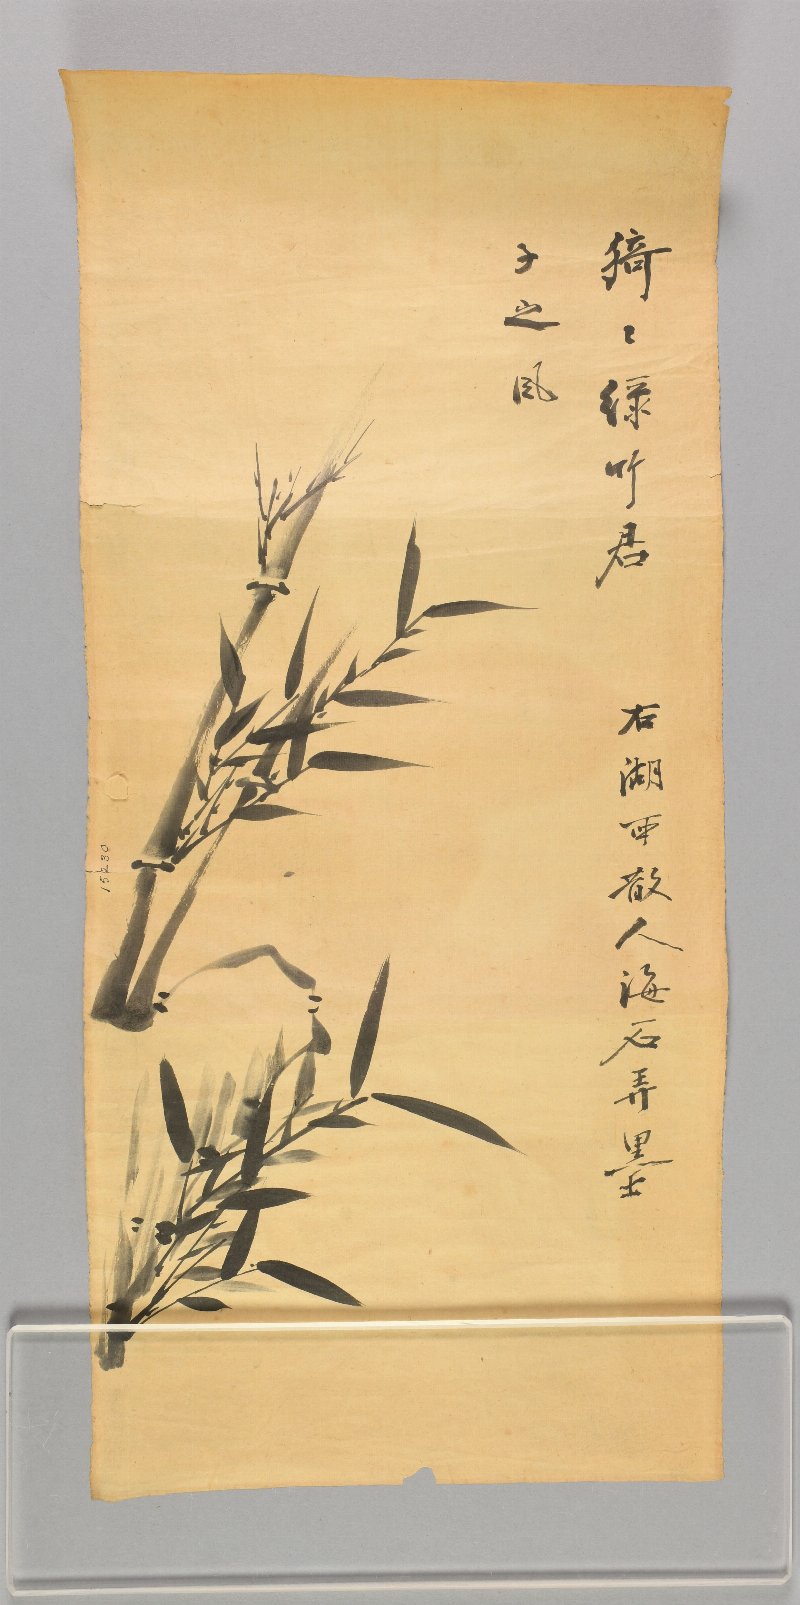 猗〻綠竹君
子之風
石湖西散人海石弄墨
15230